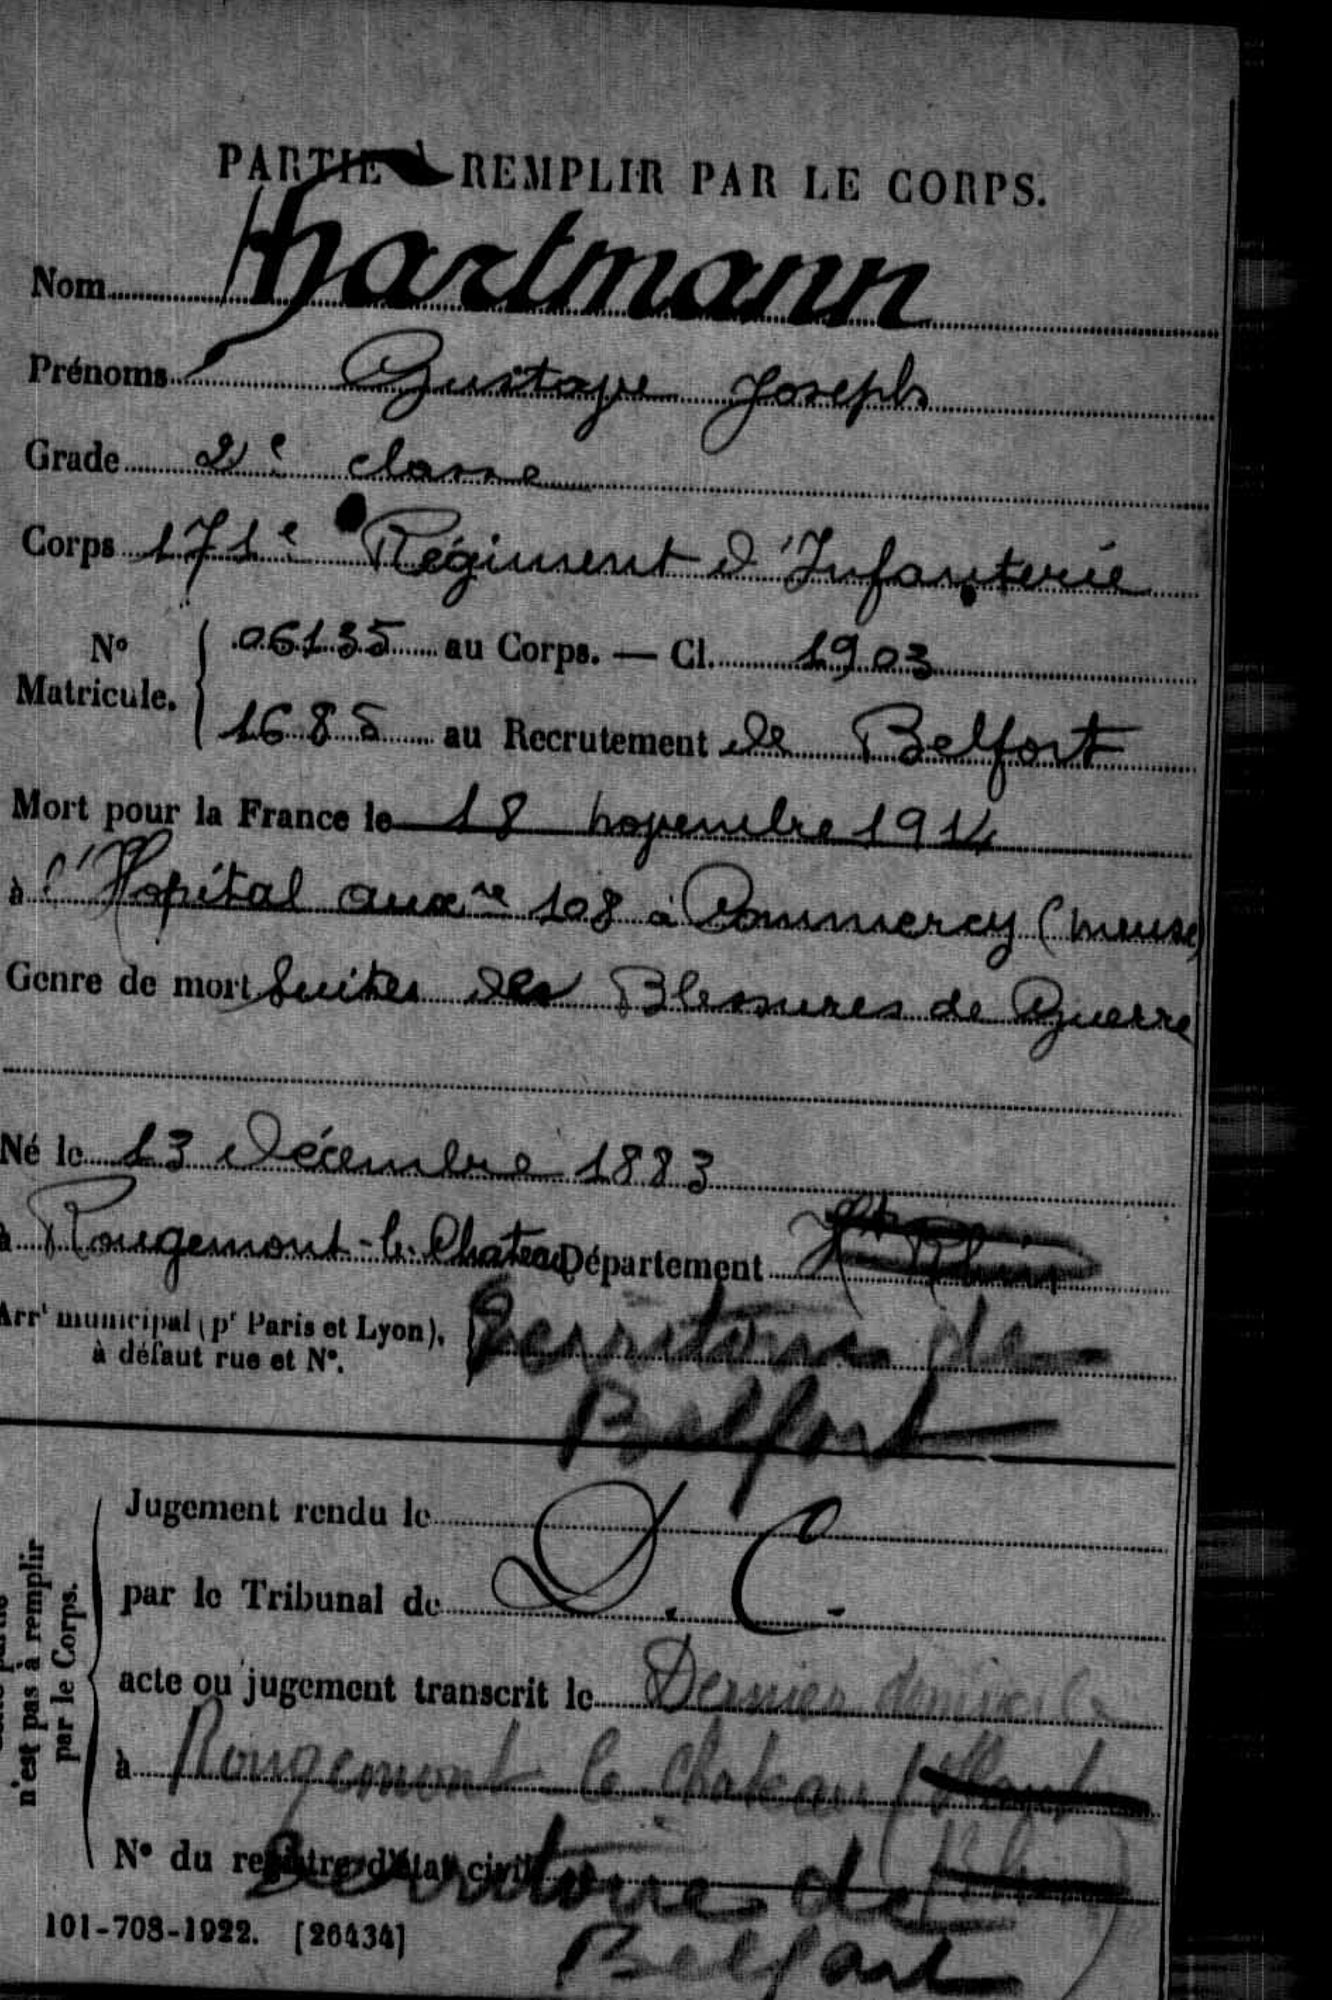 PARTIE À REMPLIR PAR LE CORPS.
Nom Hartmann
Prénoms Gustave Joseph
Grade 2e classe
Corps 171e Régiment d'Infanterie
No Matricule. { 06135 au Corps. — Cl. 1903
1685 au Recrutement de Belfort
Mort pour la France le 18 novembre 1914
à l'Hopital auxre 108 à Commercy (Meuse)
Genre de mort Suites des Blessures de Guerre
Né le 13 Décembre 1883
à Rougemont-le-Chateau Département Ht Rhin
Arrt municipal (pr Paris et Lyon), à défaut rue et No. Territoire de
Belfort
n'est pas à remplir par le Corps.
Jugement rendu le
par le Tribunal de D. C.
acte ou jugement transcrit le Dernier domicile
à Rougemont le Chateau (Haut
No du registre d'état civil Rhin)
Territoire de
Belfort
101-708-1922. [26434]